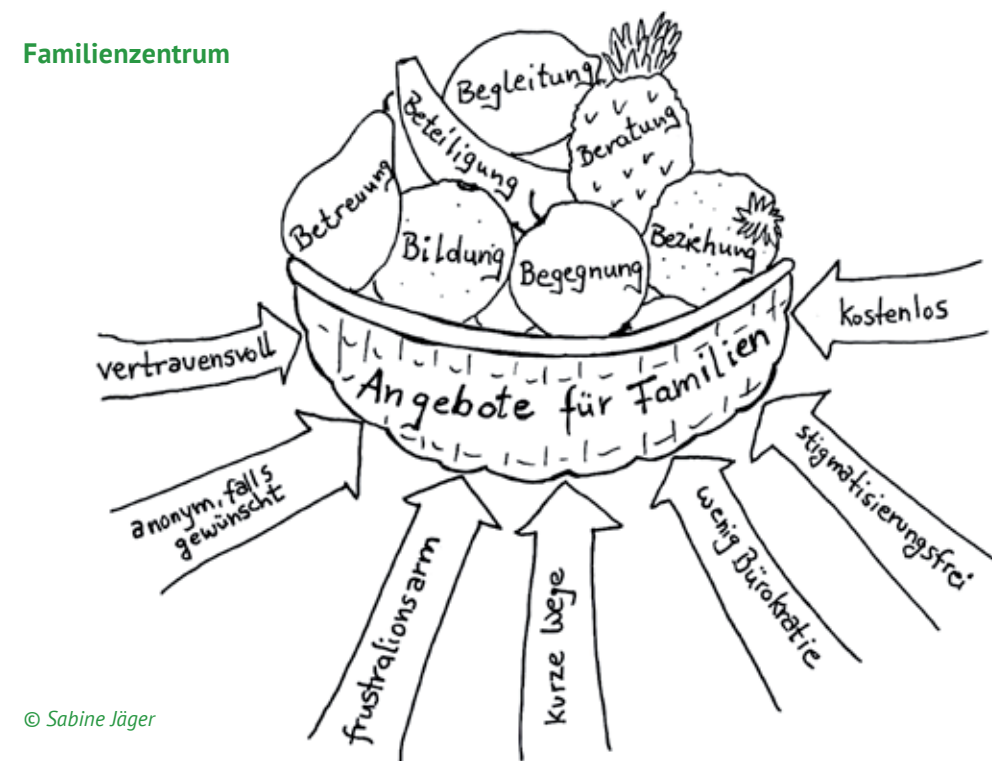 Familienzentrum
Begleitung
Beteiligung
Beratung
Betreuung
Bildung
Begegnung
Beziehung
Angebote für Familien
vertrauensvoll
anonym, falls
gewünscht
frustrationsarm
kurze Wege
wenig Bürokratie
stigmatisierungsfrei
kostenlos
© Sabine Jäger